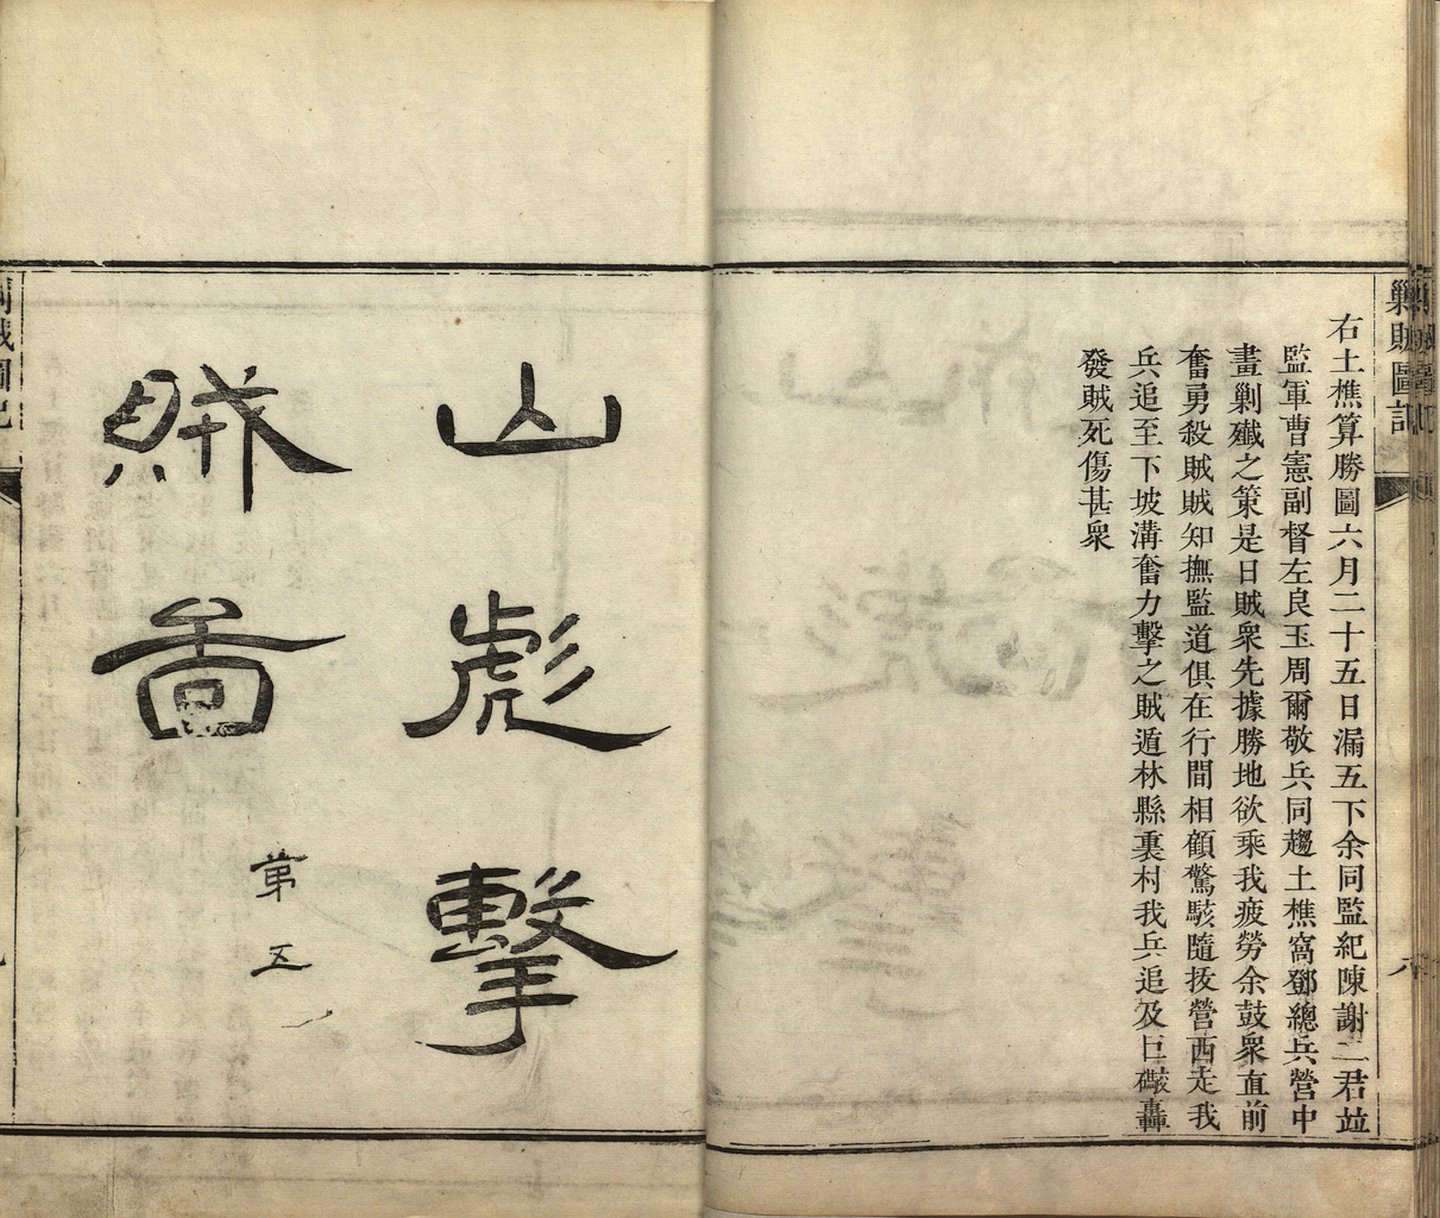 剿賊圖記
右土樵算勝圖六月二十五日漏五下余同監紀陳謝二君竝
監軍曹憲副督左良玉周爾敬兵同趨土樵窩鄧總兵營中
畫剿殲之策是日賊衆先據勝地欲乘我疲勞余鼓衆直前
奮勇殺賊賊知撫監道俱在行間相顧驚駭隨拔營西走我
兵追至下坡溝奮力擊之賊遁林縣裏村我兵追及巨礮轟
發賊死傷甚衆
六
山彪擊
賊圖
第五